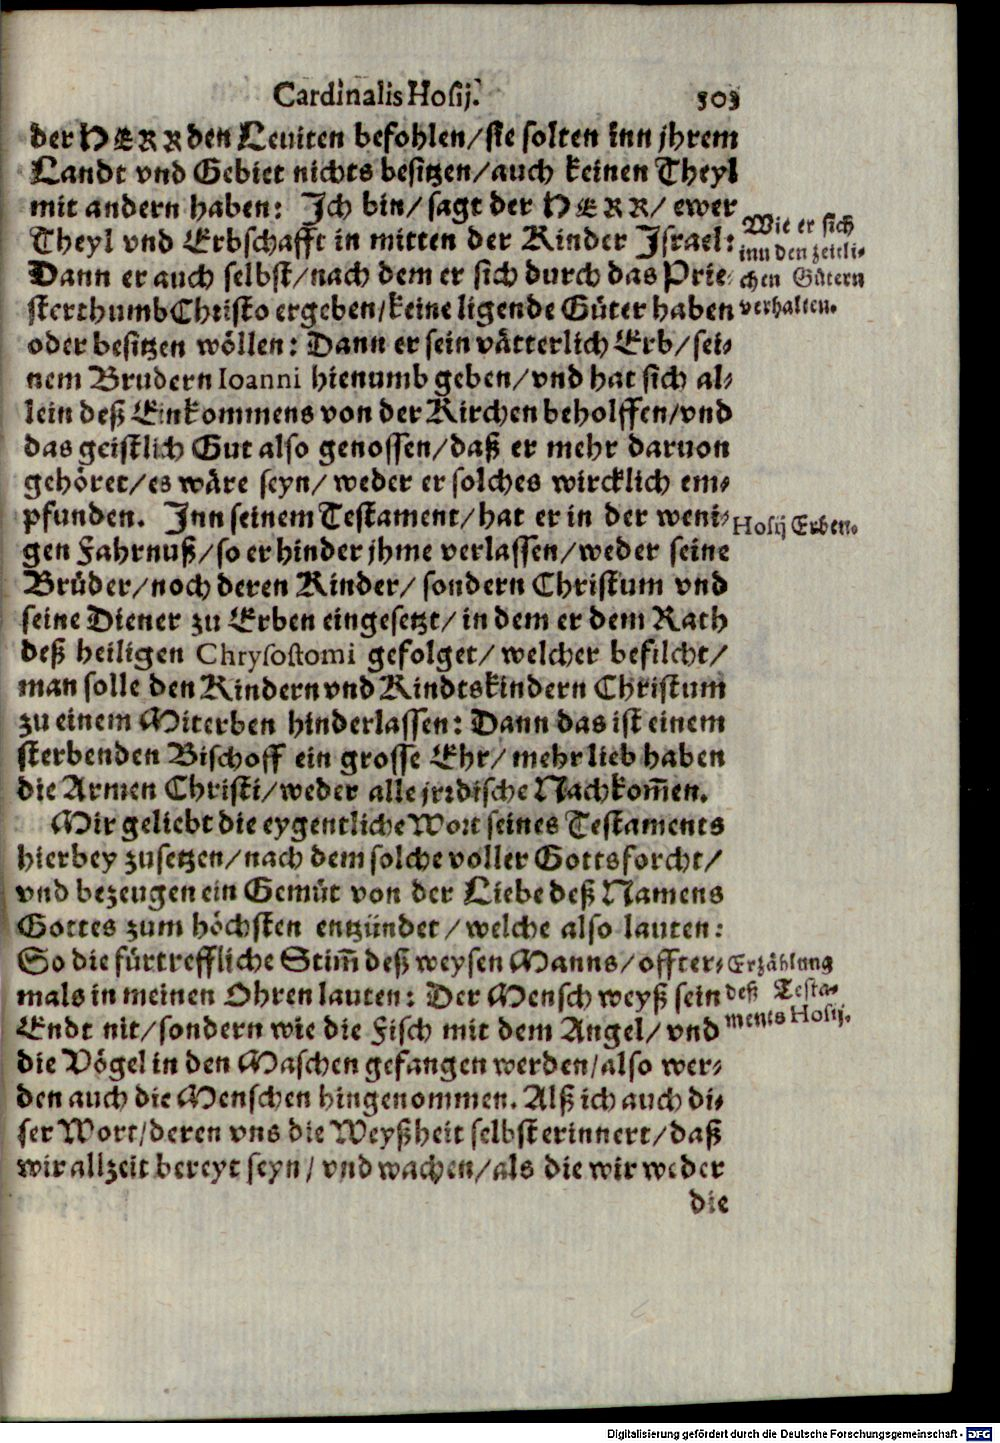 Cardinalis Hosij. 303
der HERR den Leuiten befohlen/ sie solten inn jhrem
Landt vnd Gebiet nichts besitzen/ auch keinen Theyl
mit andern haben: Ich bin/ sagt der HERR/ ewer
Theyl vnd Erbschafft in mitten der Kinder Israel:
Dann er auch selbst/ nach dem er sich durch das Prie-
sterthumb Christo ergeben/ keine ligende Güter haben
oder besitzen wöllen: Dann er sein vätterlich Erb/ sei-
nem Brudern Ioanni hienumb geben/ vnd hat sich al-
lein deß Einkommens von der Kirchen beholffen/ vnd
das geistlich Gut also genossen/ daß er mehr daruon
gehöret/ es wäre seyn/ weder er solches wircklich em-
pfunden. Inn seinem Testament/ hat er in der weni-
gen Fahrnuß/ so er hinder jhme verlassen/ weder seine
Brüder/ noch deren Kinder/ sondern Christum vnd
seine Diener zu Erben eingesetzt/ in dem er dem Rath
deß heiligen Chrysostomi gefolget/ welcher befilcht/
man solle den Kindern vnd Kindtskindern Christum
zu einem Miterben hinderlassen: Dann das ist einem
sterbenden Bischoff ein grosse Ehr/ mehr lieb haben
die Armen Christi/ weder alle jrrdische Nachkom̃en.
Mir geliebt die eygentliche Wort seines Testaments
hierbey zusetzen/ nach dem solche voller Gottsforcht/
vnd bezeugen ein Gemüt von der Liebe deß Namens
Gottes zum höchsten entzündet/ welche also lauten:
So die fürtreffliche Stim̃ deß weysen Manns/ offter-
mals in meinen Ohren lauten: Der Mensch weyß sein
Endt nit/ sondern wie die Fisch mit dem Angel/ vnd
die Vögel in den Maschen gefangen werden/ also wer-
den auch die Menschen hingenommen. Alß ich auch di-
ser Wort/ deren vns die Weyßheit selbst erinnert/ daß
wir allzeit bereyt seyn/ vnd wachen/ als die wir weder
die
Wie er sich
inn den zeitli-
chen Gütern
verhalten.
Hosij Erben.
Erzählung
deß Testa-
ments Hosij.
Digitalisierung gefördert durch die Deutsche Forschungsgemeinschaft - DFG